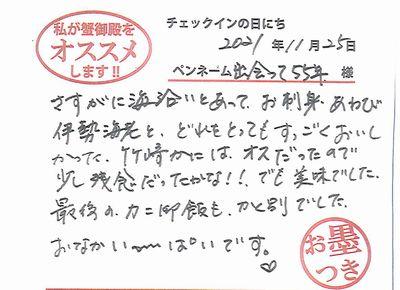 私が蟹御殿を
オススメ
します!!
チェックインの日にち
2021年11月25日
ペンネーム 出会って55年 様
さすがに海沿いとあって、お刺身、あわび
伊勢海老と、どれをとってもすっごくおいし
かった、竹崎かには、オスだったので
少し残念だったかな!!、でも美味でした。
最後の、カニ御飯も、かく別でした。
おなかい〜っぱいです。
♡
お墨
つき